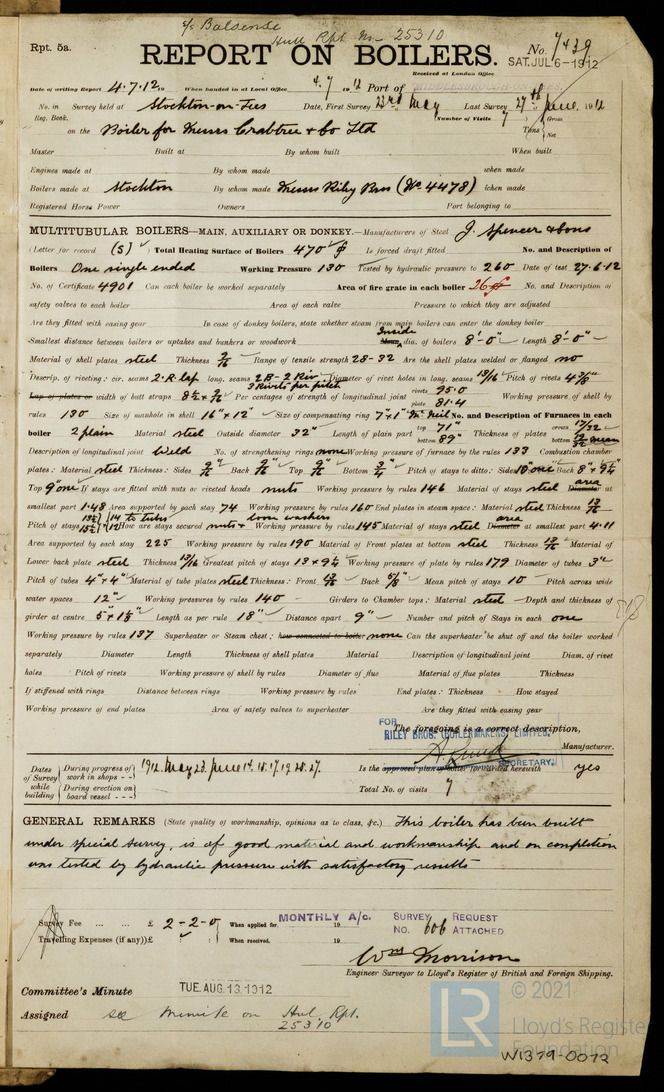 S/S Balsense
Hull Rpt No. 25310
Rpt. 5a.
REPORT ON BOILERS.
No. 7439
Received at London Office
SAT. JUL 6-1912
Date of writing Report 4.7.12 19 When handed in at Local Office 4.7 1912 Port of MIDDLESBROUGH
No. in Survey held at Stockton-on-Tees Date, First Survey 23rd May Last Survey 27th June, 1912
Reg. Book. (Number of Visits 7) Gross
on the Boiler for Messrs Crabtree & Co Ltd Tons Net
Master Built at By whom built When built
Engines made at By whom made when made
Boilers made at Stockton By whom made Messrs Riley Bros (No 4478) when made
Registered Horse Power Owners Port belonging to
MULTITUBULAR BOILERS—MAIN, AUXILIARY OR DONKEY.—Manufacturers of Steel J. Spencer & Sons
(Letter for record (S)) Total Heating Surface of Boilers 470 Is forced draft fitted No. and Description of
Boilers One single ended Working Pressure 130 Tested by hydraulic pressure to 260 Date of test 27.6.12
No. of Certificate 4901 Can each boiler be worked separately Area of fire grate in each boiler 26 No. and Description of
safety valves to each boiler Area of each valve Pressure to which they are adjusted
Are they fitted with easing gear In case of donkey boilers, state whether steam from main boilers can enter the donkey boiler
Smallest distance between boilers or uptakes and bunkers or woodwork Inside Mean dia. of boilers 8'-0" Length 8'-0"
Material of shell plates steel Thickness 9/16 Range of tensile strength 28-32 Are the shell plates welded or flanged no
Descrip. of riveting: cir. seams 2.R.lap long. seams 2B-2Riv 3 Rivets per pitch Diameter of rivet holes in long. seams 13/16 Pitch of rivets 4 3/8"
Lap of plates or width of butt straps 8 1/2 x 9/16 Per centages of strength of longitudinal joint rivets 95.0 plate 81.4 Working pressure of shell by
rules 130 Size of manhole in shell 16" x 12" Size of compensating ring 7" x 1" McNeil No. and Description of Furnaces in each
boiler 2 plain Material steel Outside diameter 32" Length of plain part top 71" bottom 89" Thickness of plates crown 17/32" bottom
Description of longitudinal joint Weld No. of strengthening rings none Working pressure of furnace by the rules 133 Combustion chamber
plates: Material steel Thickness: Sides 9/16" Back 9/16" Top 9/16" Bottom 3/4" Pitch of stays to ditto: Sides 10" one Back 8" x 9 1/4"
Top 9" one If stays are fitted with nuts or riveted heads nuts Working pressure by rules 146 Material of stays steel area Diameter at
smallest part 1.48 Area supported by each stay 74 Working pressure by rules 160 End plates in steam space: Material steel Thickness 13/16
Pitch of stays 14 to tubes How are stays secured nuts & loose washers Working pressure by rules 145 Material of stays steel area Diameter at smallest part 4.11
Area supported by each stay 225 Working pressure by rules 190 Material of Front plates at bottom steel Thickness 13/16 Material of
Lower back plate steel Thickness 13/16 Greatest pitch of stays 13 x 9 1/4 Working pressure of plate by rules 179 Diameter of tubes 3"
Pitch of tubes 4" x 4" Material of tube plates steel Thickness: Front 13/16 Back 5/8" Mean pitch of stays 10 Pitch across wide
water spaces 12" Working pressures by rules 140 Girders to Chamber tops: Material steel Depth and thickness of
girder at centre 5" x 1 1/8" Length as per rule 18" Distance apart 9" Number and pitch of Stays in each one
Working pressure by rules 137 Superheater or Steam chest; how connected to boiler none Can the superheater be shut off and the boiler worked
separately Diameter Length Thickness of shell plates Material Description of longitudinal joint Diam. of rivet
holes Pitch of rivets Working pressure of shell by rules Diameter of flue Material of flue plates Thickness
If stiffened with rings Distance between rings Working pressure by rules End plates: Thickness How stayed
Working pressure of end plates Area of safety valves to superheater Are they fitted with easing gear
FOR The foregoing is a correct description,
RILEY BROS. (BOILERMAKERS) LIMITED.
SECRETARY. Manufacturer.
Dates of Survey while building During progress of work in shops - - 1912. May 23. June 14. 15. 17. 19. 25. 27. Is the approved plan of boiler forwarded herewith yes
During erection on board vessel - - - Total No. of visits 7
GENERAL REMARKS (State quality of workmanship, opinions as to class, &c.) This boiler has been built
under special survey, is of good material and workmanship and on completion
was tested by hydraulic pressure with satisfactory results
Survey Fee ... ... £ 2-2-0 When applied for, MONTHLY A/c. 19 SURVEY REQUEST
Travelling Expenses (if any) £ When received, 19 NO. 606 ATTACHED
Wm Morrison
Engineer Surveyor to Lloyd's Register of British and Foreign Shipping.
Committee's Minute TUE. AUG. 13. 1912
Assigned see minute on Hul. Rpt.
25310
LR © 2021
Lloyd's Register
Foundation
W1379-0072